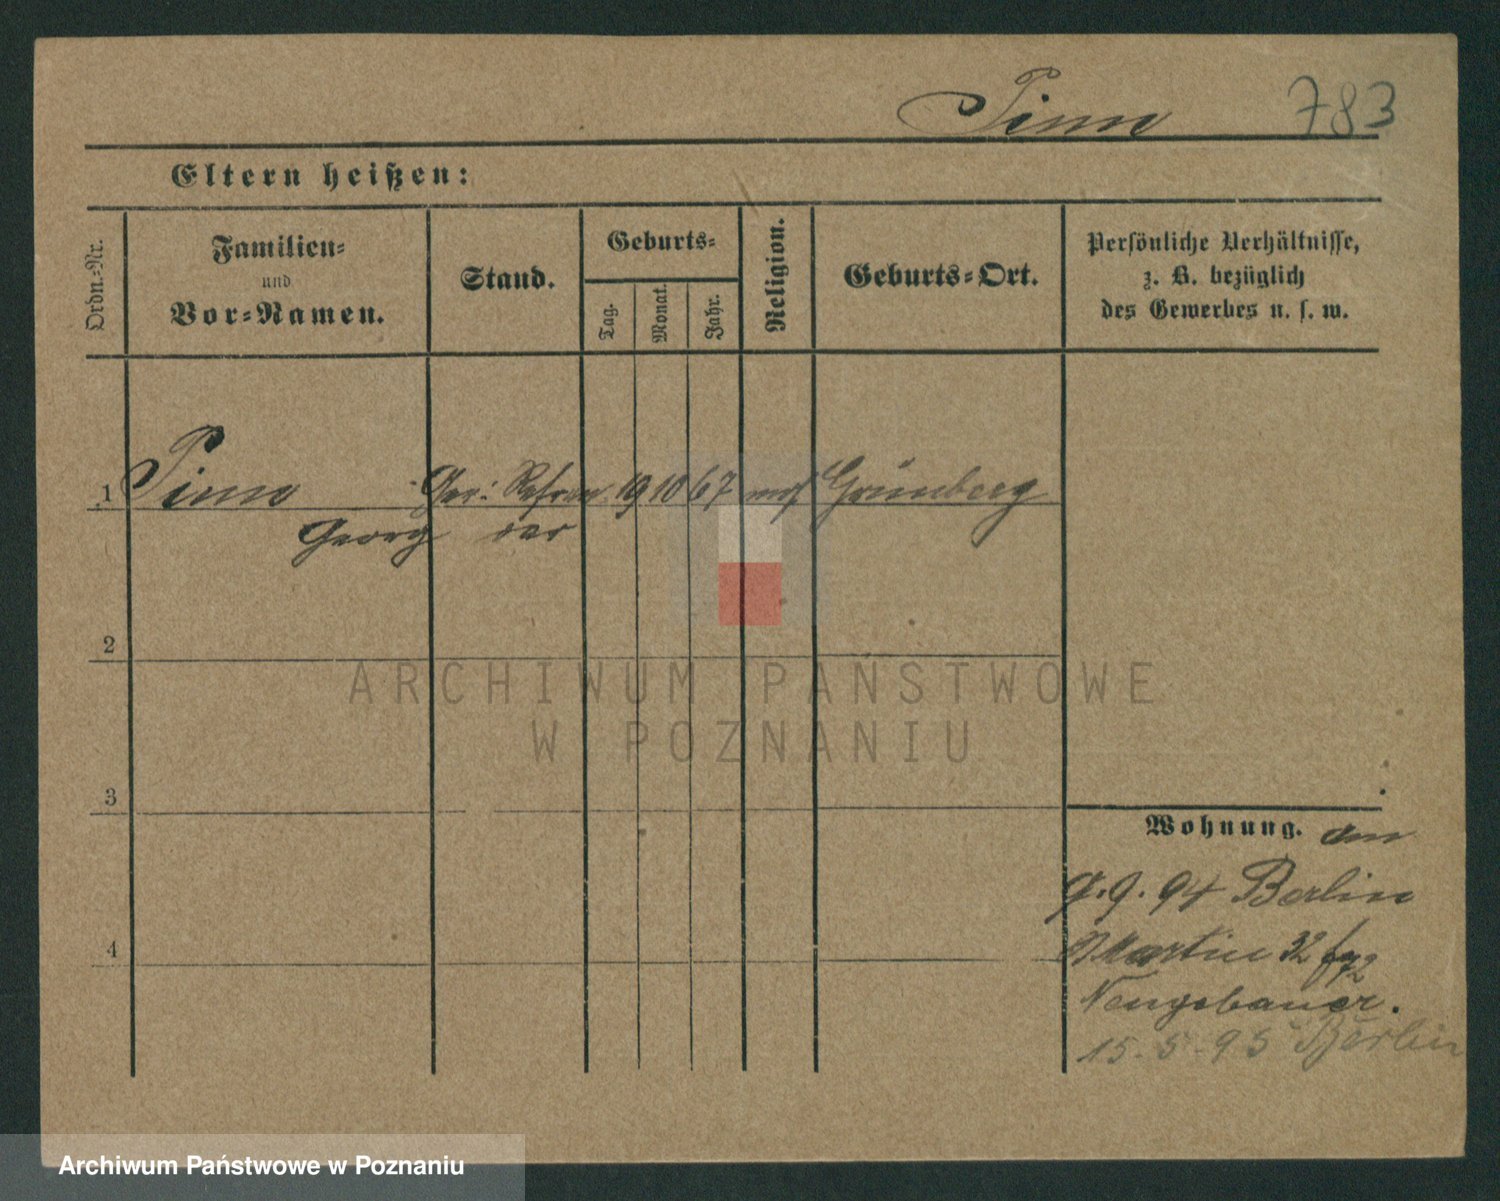 Pinn 783
Eltern heißen:
Ordn.-Nr.
Familien-
und
Vor-Namen.
Stand.
Geburts-
Tag.
Monat.
Jahr.
Religion.
Geburts-Ort.
Persönliche Verhältnisse,
z. B. bezüglich
des Gewerbes u. s. w.
1 Pinn Ger: Referen 19 10 67 mos Grünberg
Georg dar
2
3
4
Wohnung. am
9.9.94 Berlin
Martin 32
Neugebauer.
15.5.95 Berlin
ARCHIWUM PAŃSTWOWE
W POZNANIU
Archiwum Państwowe w Poznaniu